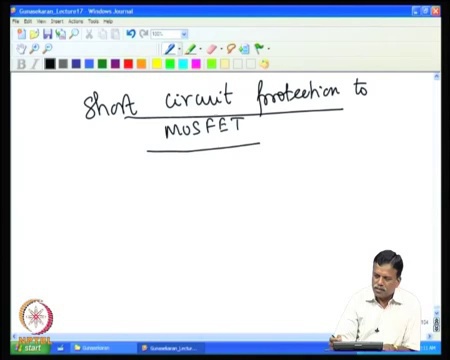 Gunasekaran_Lecture17 - Windows Journal
File Edit View Insert Actions Tools Help
100%
B I
Short circuit protection to
MOSFET
start
Gunasekaran
Gunasekaran_Lectu...